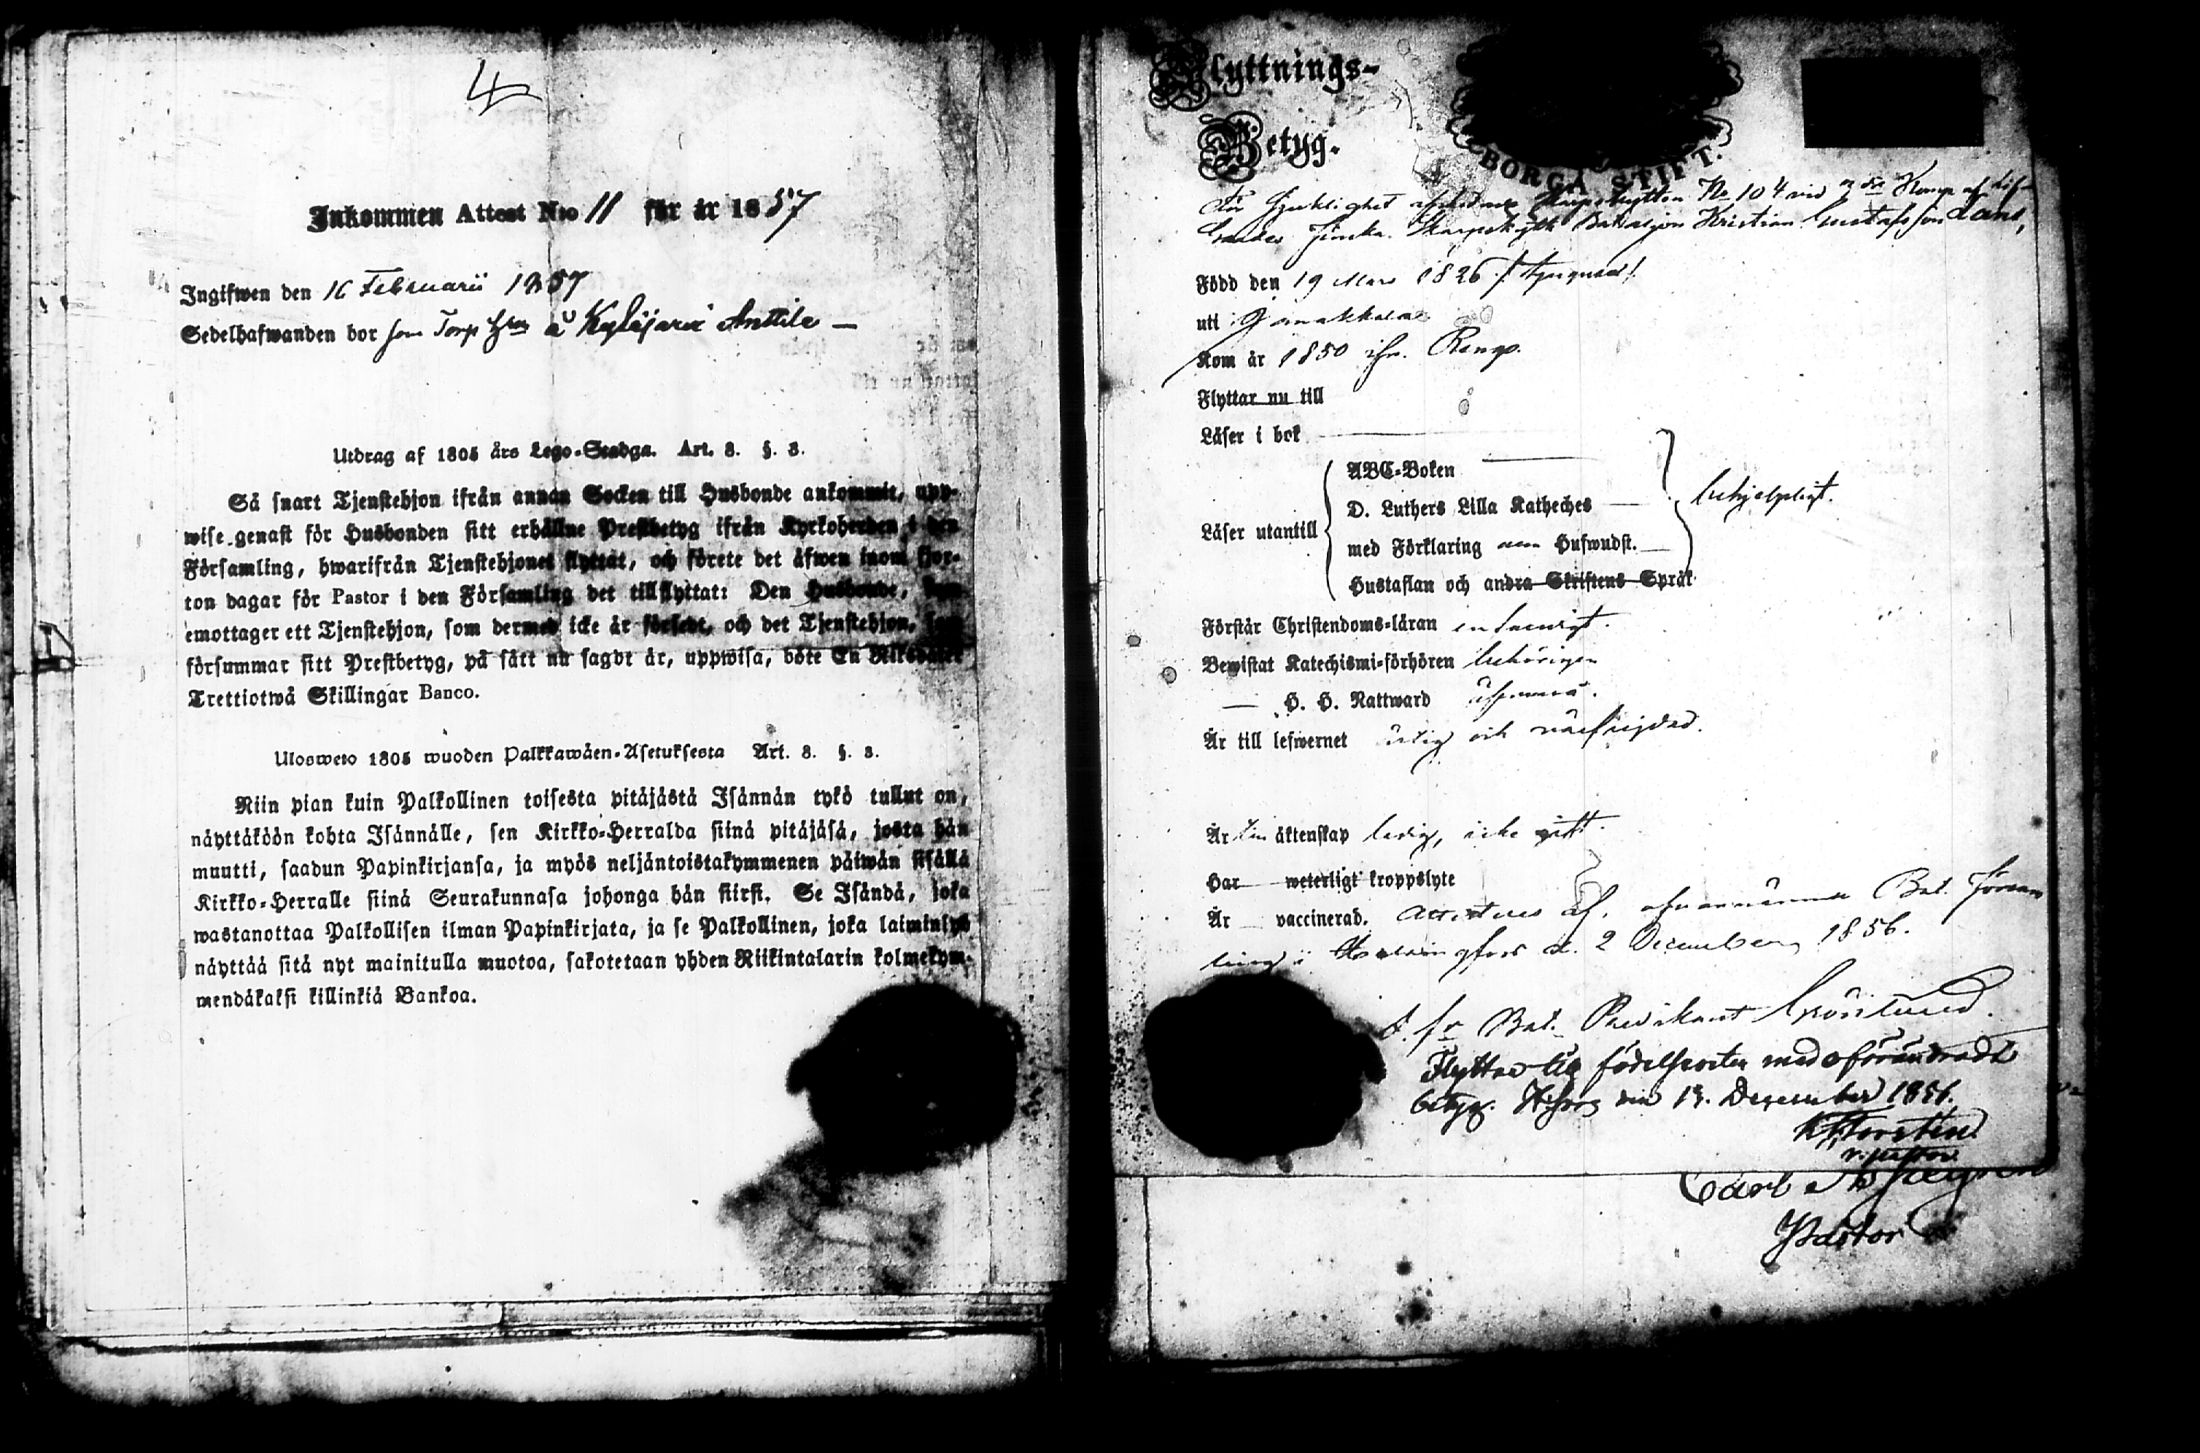 4
Inkommen Attest N:o 11 för år 1857
Ingifwen den 16 Februarii 1857
Sedelhafwanden bor som Torp å Kyläjärvi Anttila —
Utdrag af 1805 års Lego-Stadga. Art. 8. §. 3.
Så snart Tjenstehjon ifrån annan Socken till Husbonde ankommit, upp-
wise genast för Husbonden sitt erhållne Prestbetyg ifrån Kyrkoherden i den
Församling, hwarifrån Tjenstehjonet flyttat, och förete det äfwen inom fjor-
ton dagar för Pastor i den Församling det tillflyttat: Den Husbonde, som
emottager ett Tjenstehjon, som dermed icke är försedt, och det Tjenstehjon, som
försummar sitt Prestbetyg, på sätt nu sagdt är, uppwisa, böte En Riksdaler
Trettiotwå Skillingar Banco.
Ulosweto 1805 wuoden Palkkawäen-Asetuksesta Art. 8. §. 3.
Niin pian kuin Palkollinen toisesta pitäjästä Isännän tykö tullut on,
näyttäköön kohta Isännälle, sen Kirkko-Herralda siinä pitäjäsä, josta hän
muutti, saadun Papinkirjansa, ja myös neljäntoistakymmenen päiwän sisällä
Kirkko-Herralle siinä Seurakunnasa johonga hän siirsi. Se Isändä, joka
wastanottaa Palkollisen ilman Papinkirjata, ja se Palkollinen, joka laiminlyö
näyttää sitä nyt mainitulla muotoa, sakotetaan yhden Riikintalarin kolmekym-
mendäkaksi killinkiä Bankoa.
Flyttnings-
Betyg.
BORGÅ STIFT.
För sjuklighet afskedade Skarpskytten No 104 vid Komp. af
Finska Skarpskytte Bataljon Kristian Gustafsson Lans,
Född den 19 Mars 1826
uti Janakkala
Kom år 1850 ifr. Rengo.
Flyttar nu till
Läser i bok
Läser utantill
ABC-Boken
D. Luthers Lilla Katheches
med Förklaring Hufwudst.
Hustaflan och andra Skriftens Språk
behjelpligt.
Förstår Christendoms-läran enfaldigt.
Bewistat Katechismi-förhören behörigen
— H. H. Nattward
Är till lefwernet ärlig och
Är till äktenskap ledig, icke gift.
Har weterligt kroppslyte
Är vaccinerad. Attesteras af ofvannämnde Bat. Försam
ling i Helsingfors d. 2 December 1856.
Bat. Predikant Grönlund.
Flyttar till födelseorten med oförändradt
betyg. Hfors den 13. December 1856.
v. pastor
Carl
Pastor